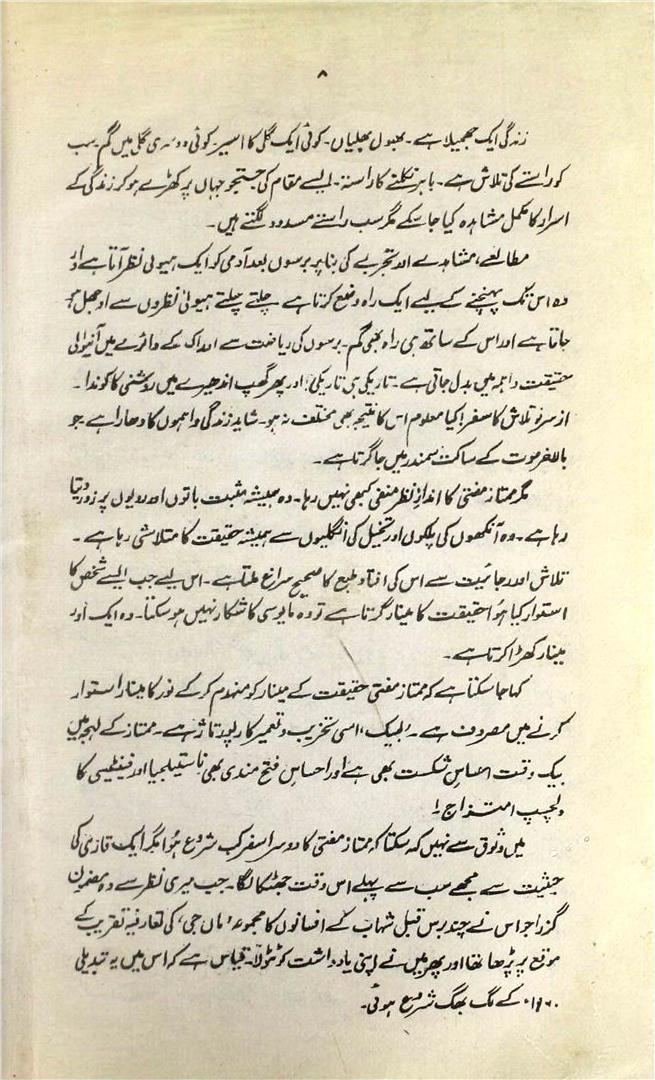 ۸
زندگی ایک جھمیلا ہے۔ بھول بھلیاں۔ کوئی ایک گلی کا اسیر۔ کوئی دوسری گلی میں گم۔ سب
کو راستے کی تلاش ہے۔ باہر نکلنے کا راستہ۔ ایسے مقام کی جستجو جہاں پر کھڑے ہو کر زندگی کے
اسرار کا مکمل مشاہدہ کیا جا سکے مگر سب راستے مسدود لگتے ہیں۔
مطالعے، مشاہدے اور تجربے کی بنا پر برسوں بعد آدمی کو ایک ہیولیٰ نظر آتا ہے اور
وہ اس تک پہنچنے کے لیے ایک راہ وضع کرتا ہے۔ چلتے چلتے ہیولیٰ نظروں سے اوجھل ہو
جاتا ہے اور اس کے ساتھ ہی راہ بھی گم۔ برسوں کی ریاضت سے ادراک کے دائرے میں آنیوالی
حقیقت واہمہ میں بدل جاتی ہے۔ تاریکی ہی تاریکی! اور پھر گھپ اندھیرے میں روشنی کا کوندا۔
ازسرنو تلاش کا سفر! کیا معلوم اس کا نتیجہ بھی مختلف نہ ہو۔ شاید زندگی واہموں کا دھارا ہے جو
بالآخر موت کے ساکت سمندر میں جا گرتا ہے۔
مگر ممتاز مفتی کا اندازِ نظر منفی کبھی نہیں رہا۔ وہ ہمیشہ مثبت باتوں اور رویوں پر زور دیتا
رہا ہے۔ وہ آنکھوں کی پلکوں اور تخیل کی انگلیوں سے ہمیشہ حقیقت کا متلاشی رہا ہے۔
تلاش اور جائیت سے اس کی افتاد طبع کا صحیح سراغ ملتا ہے۔ اس لیے جب ایسے شخص کا
استوار کیا ہُوا حقیقت کا مینار گرتا ہے تو وہ مایوسی کا شکار نہیں ہو سکتا۔ وہ ایک اور
مینار کھڑا کرتا ہے۔
کہا جا سکتا ہے کہ ممتاز مفتی حقیقت کے مینار کو منہدم کر کے نور کا مینار استوار
کرنے میں مصروف ہے۔ 'لبیک'، اسی تخریب و تعمیر کا رپورتاژ ہے۔ ممتاز کے لہجے میں
بیک وقت احساسِ شکست بھی ہے اور احساسِ فتح مندی بھی ناسٹیلجیا اور فینٹیسی کا
دلچسپ امتزاج۔!
میں وثوق سے نہیں کہہ سکتا کہ ممتاز مفتی کا دوسرا سفر کب شروع ہُوا مگر ایک قاری کی
حیثیت سے مجھے سب سے پہلے اس وقت جھٹکا لگا۔ جب میری نظر سے وہ مضمون
گزرا جو اس نے چند برس قبل شہاب کے افسانوں کا مجموعہ 'ماں جی' کی تعارفیہ تقریب کے
موقع پر پڑھا تھا اور پھر میں نے اپنی یادداشت کو ٹٹولا۔ قیاس ہے کہ اس میں یہ تبدیلی
کے لگ بھگ شروع ہوئی۔